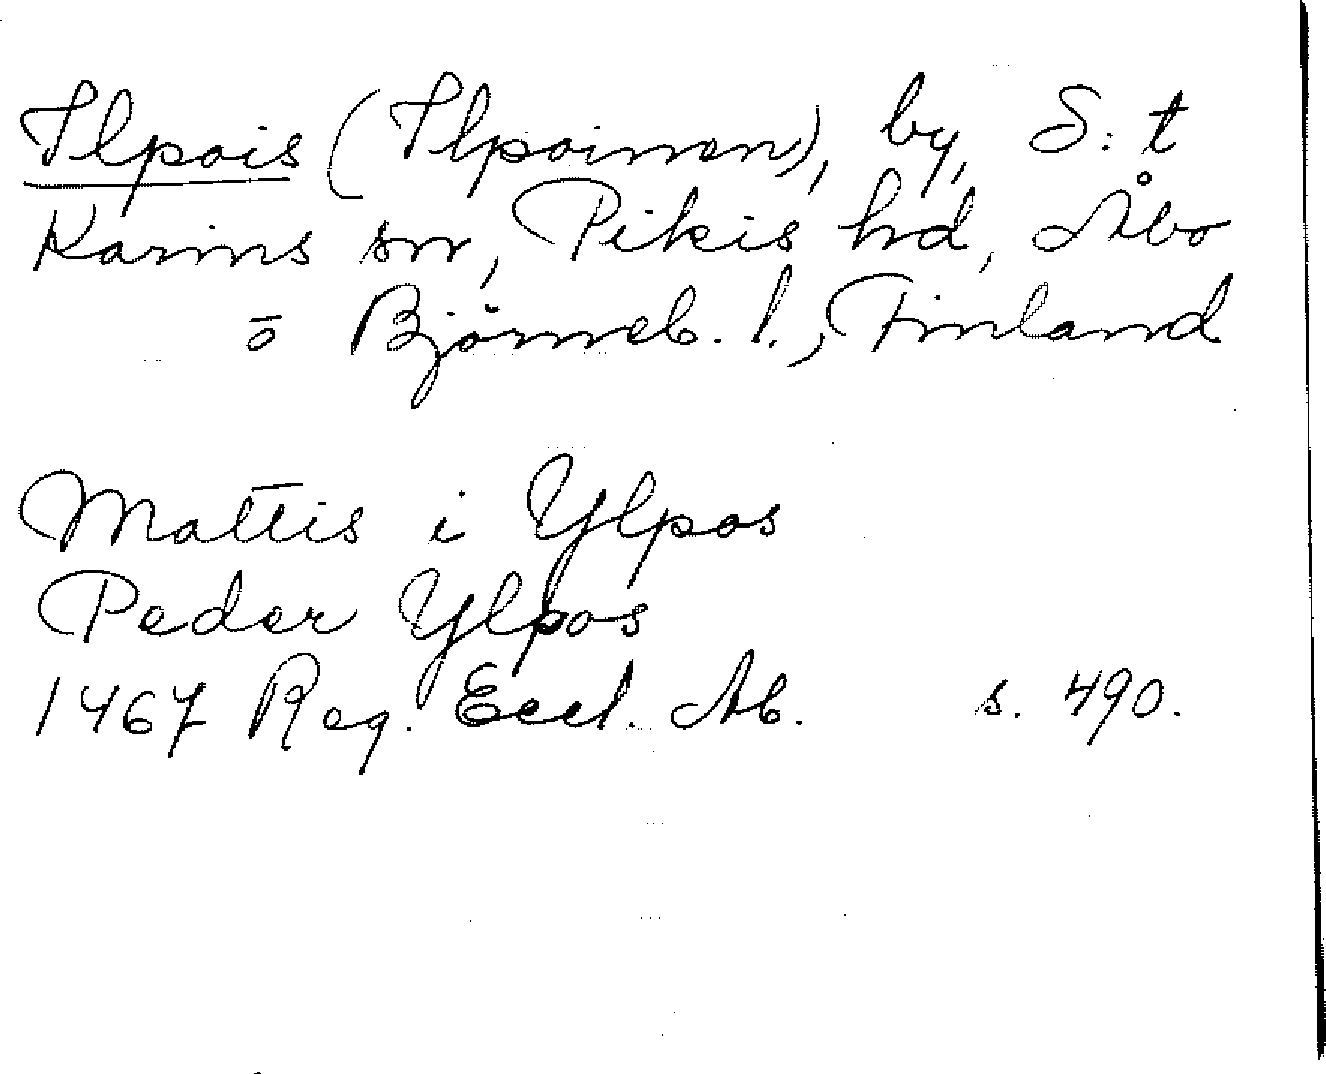 Ilpois (Ilpoinen), by, S:t
Karins sn, Pikis hd, Åbo
o Björneb. l., Finland
Mattis i Ylpos
Peder Ylpos
1467 Reg. Eccl. Ab. s. 490.